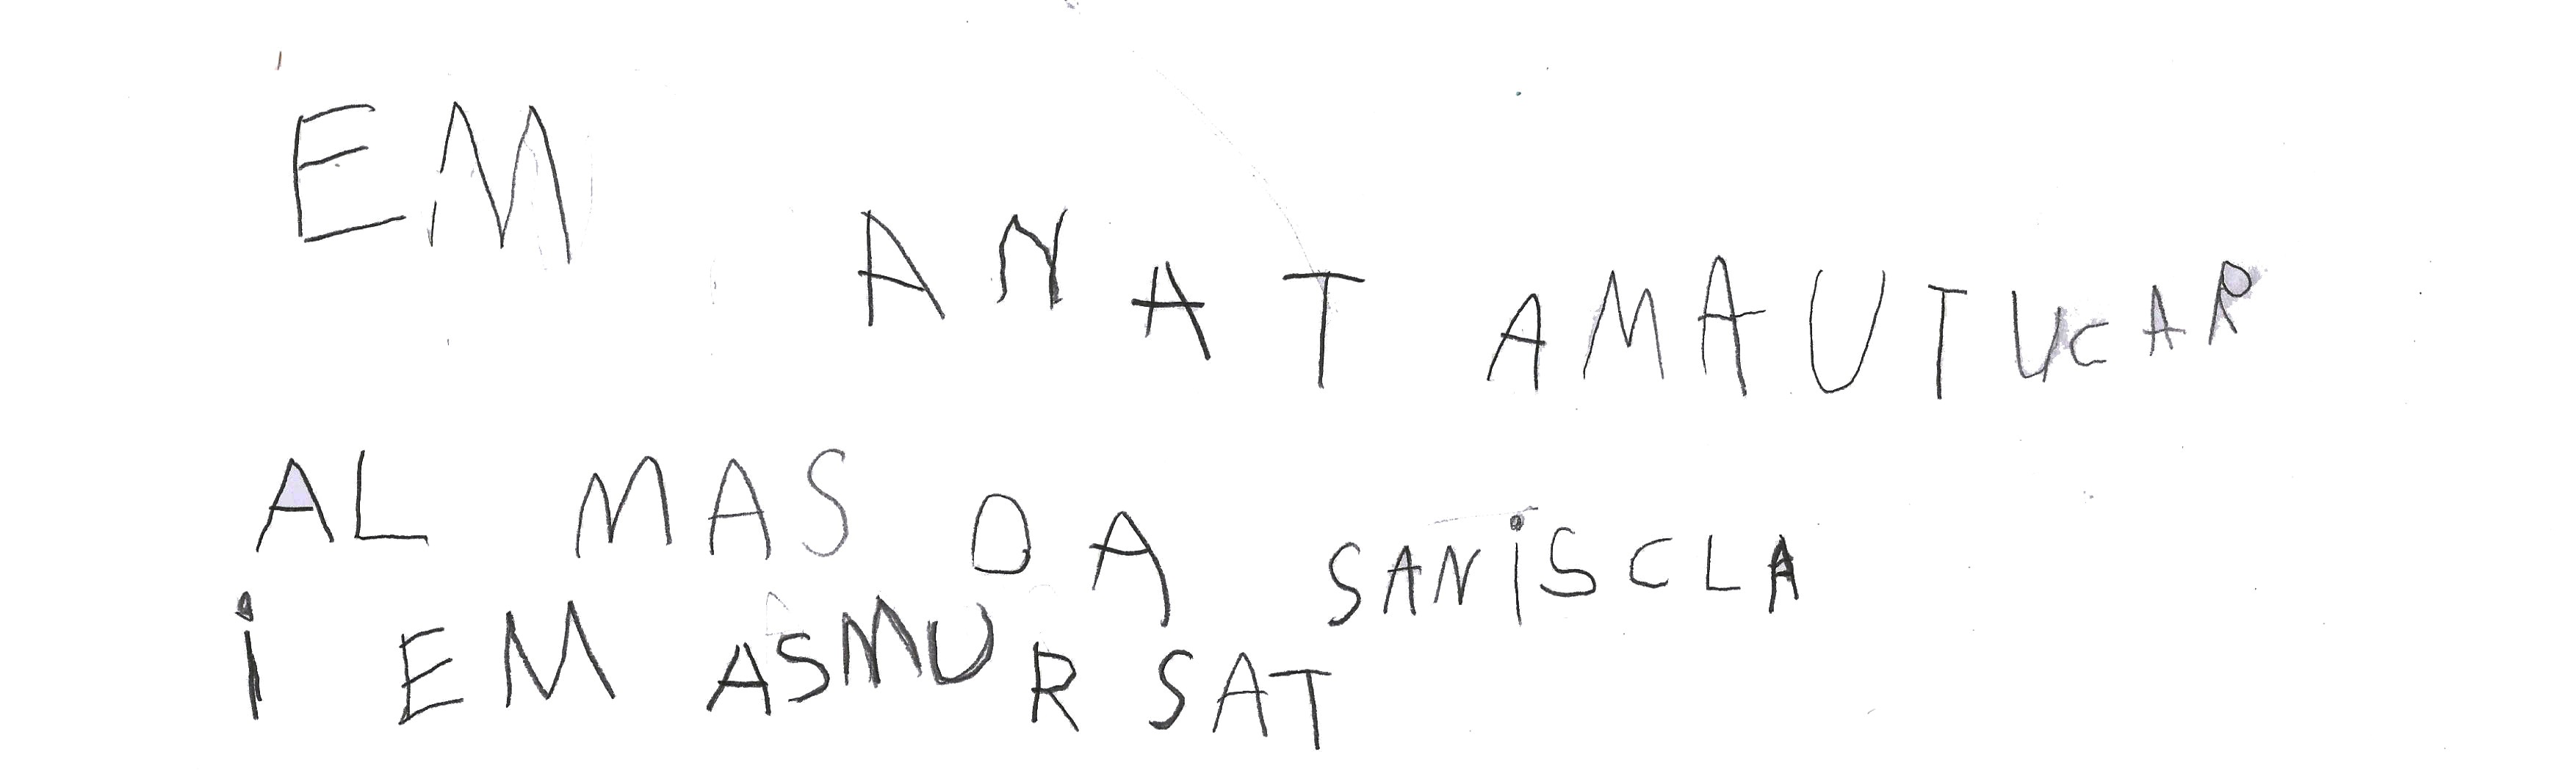 EM ANAT AMAUTUCAR
AL MAS DA SANISCLA
i EM ASMURSAT